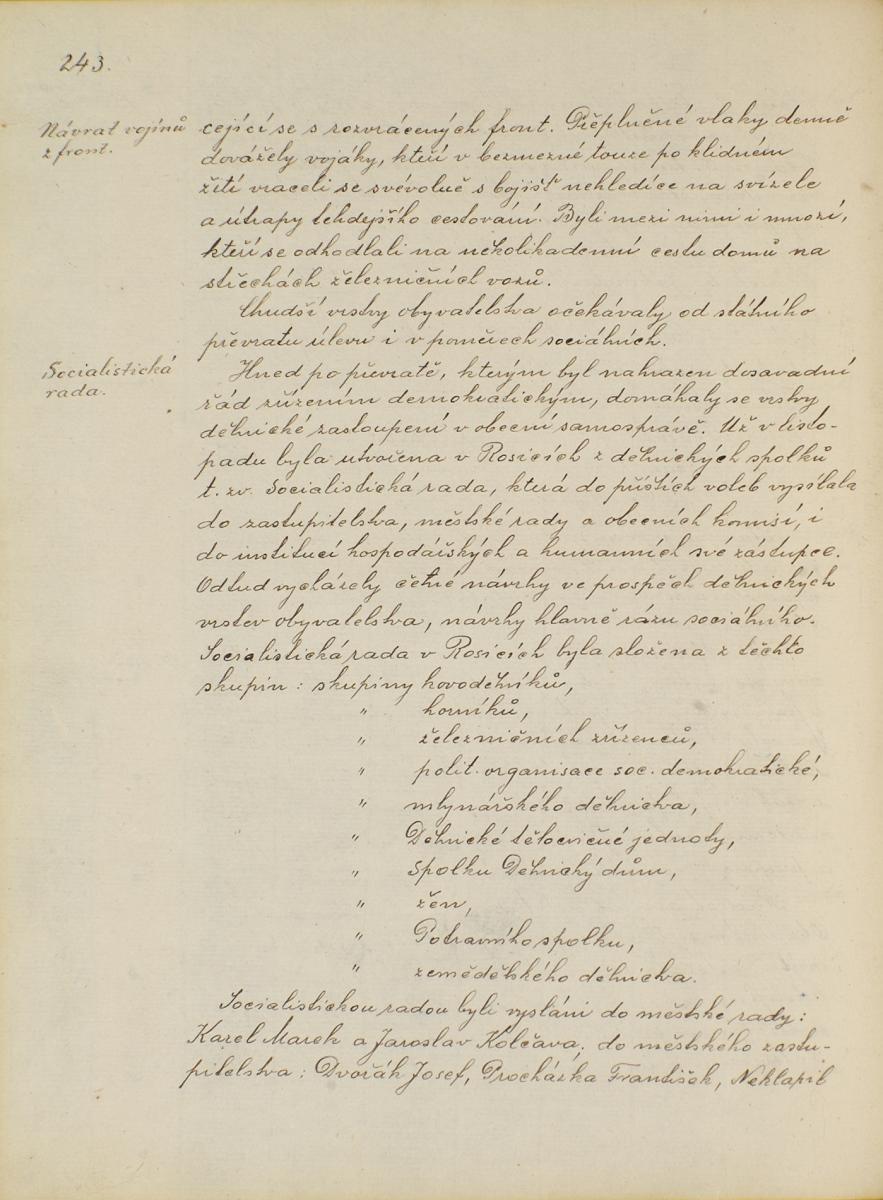 243.
Návrat vojínů
z front.
cející se s rozvrácených front. Přeplněné vlaky denně
dovážely vojáky, kteří v bezmezné touze po klidném
žití vraceli se svévolně s bojišť nehledíce na svízele
a útrapy tehdejšího cestování. Byli mezi nimi i mnozí,
kteří se odhodlali na několikadenní cestu domů na
střechách železničních vozů.
Chudší vrstvy obyvatelstva očekávaly od státního
převratu úlevu i v poměrech sociálních.
Socialistická
rada.
Hned po převratě, kterým byl nahrazen dosavadní
řád zřízením demokratickým, domáhaly se vrstvy
dělnické zastoupení v obecní samosprávě. Už v listo-
padu byla utvořena v Rosicích z dělnických spolků
t. zv. Socialistická rada, která do příštích voleb vysílala
do zastupitelstva, městské rady a obecních komisí, i
do institucí hospodářských a humanních své zástupce.
Odtud vycházely četné návrhy ve prospěch dělnických
vrstev obyvatelstva, návrhy hlavně rázu sociálního.
Socialistická rada v Rosicích byla složena z těchto
skupin: skupiny kovodělníků,
" horníků,
" železničních zřízenců,
" polit. organisace soc. demokratické,
" mlynářského dělnictva,
" Dělnické tělocvičné jednoty,
" Spolku Dělnický dům,
" žen,
" Potravního spolku,
" zemědělského dělnictva.
Socialistickou radou byli vysláni do městské rady:
Karel Marek a Jaroslav Kolčava; do městského zastu-
pitelstva: Dvořák Josef, Procházka František, Neklapil